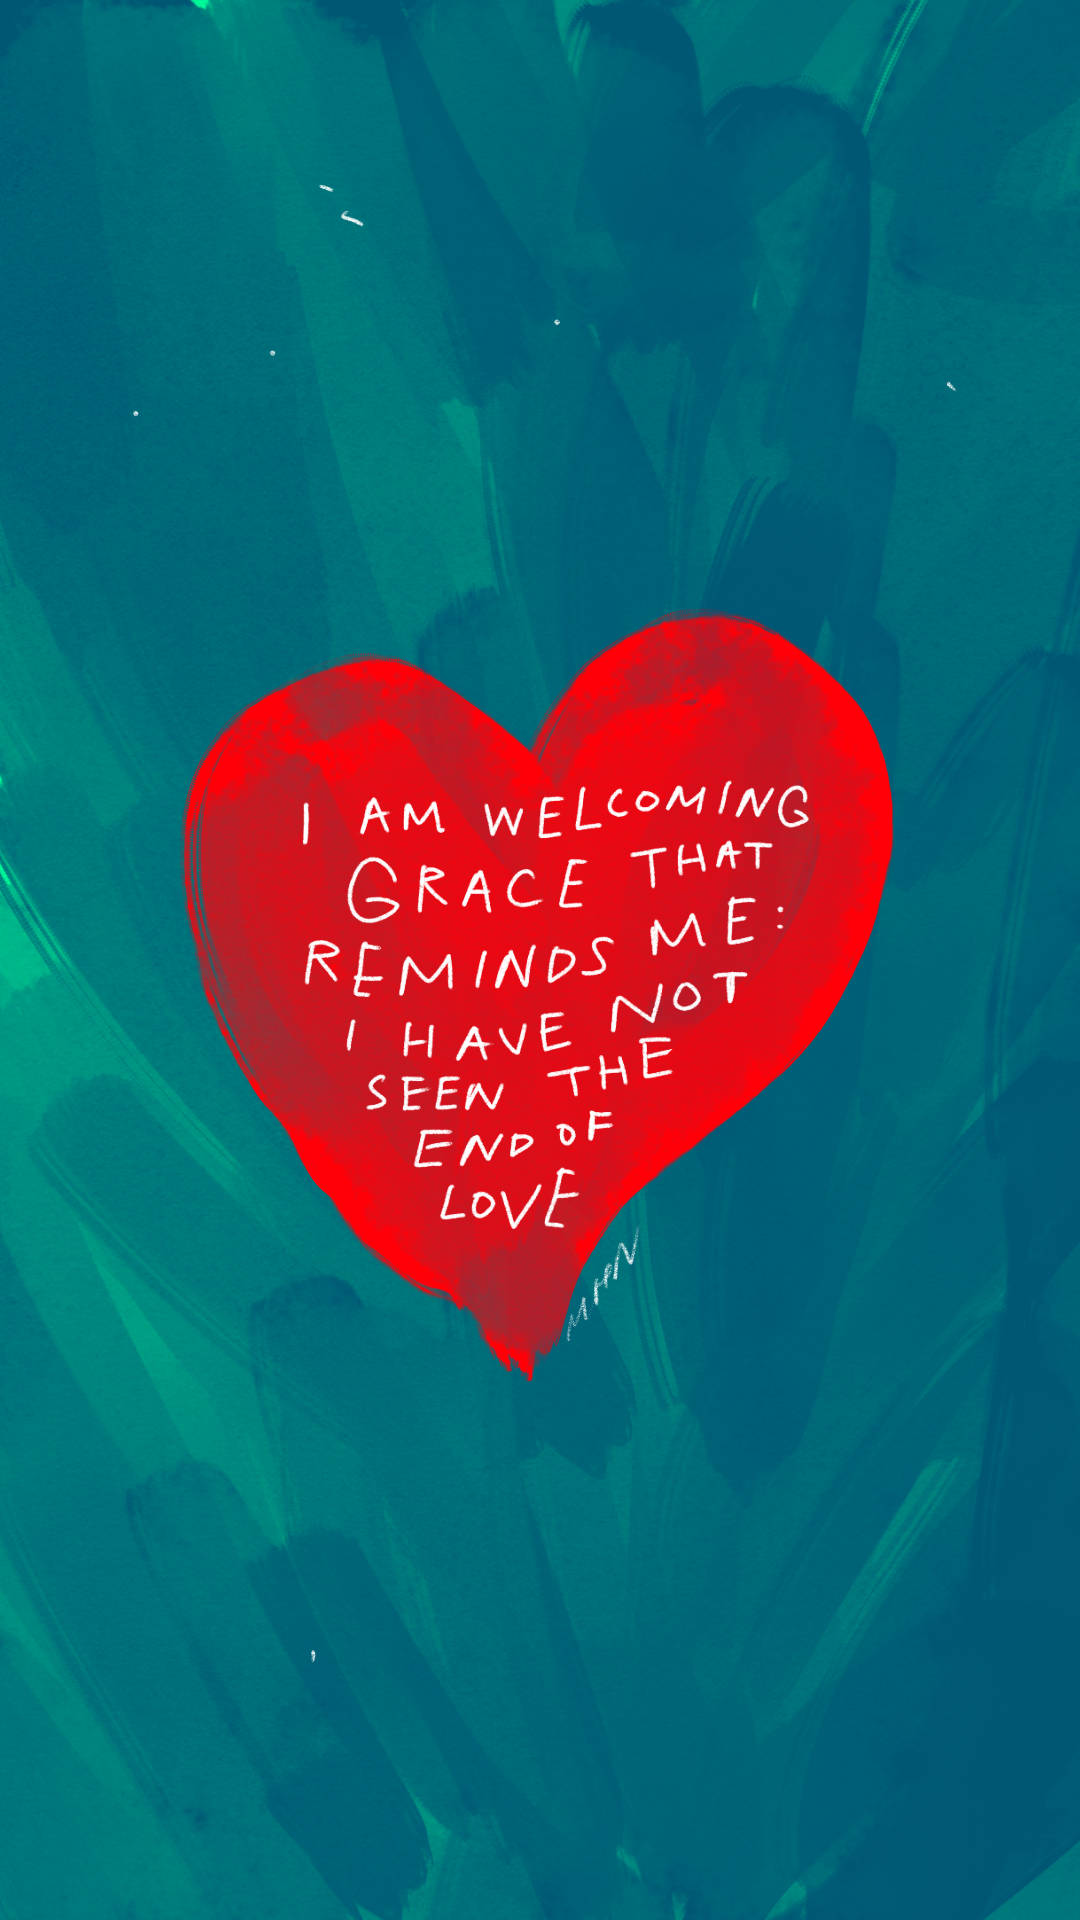 I AM WELCOMING
GRACE THAT
REMINDS ME:
I HAVE NOT
SEEN THE
END OF
LOVE
MHN